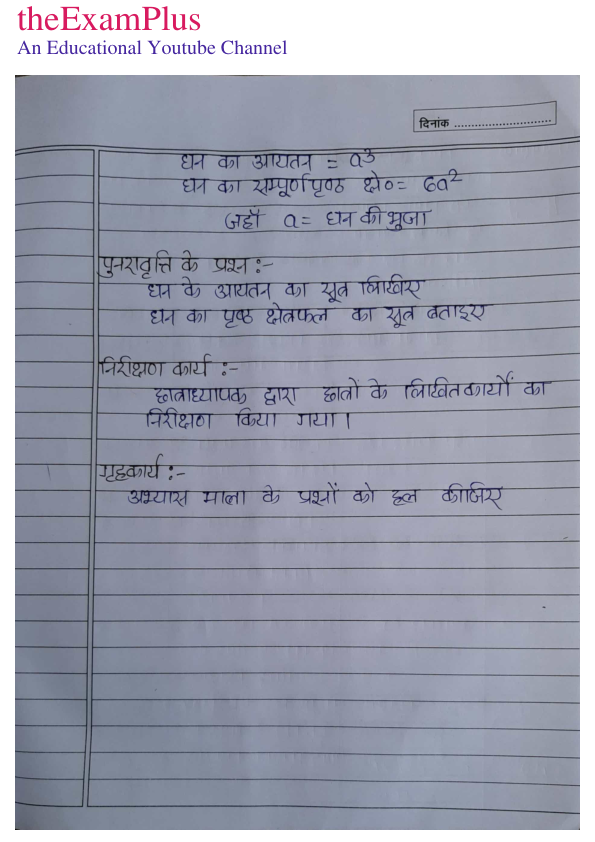 theExamPlus
An Educational Youtube Channel
दिनांक ..............................
घन का आयतन = a³
घन का सम्पूर्ण पृष्ठ क्षे० = 6a²
जहाँ a = घन की भुजा
पुनरावृत्ति के प्रश्न :-
घन के आयतन का सूत्र लिखिए
घन का पृष्ठ क्षेत्रफल का सूत्र बताइए
निरीक्षण कार्य :-
छात्राध्यापक द्वारा छात्रों के लिखित कार्यों का
निरीक्षण किया गया।
गृहकार्य :-
अभ्यास माला के प्रश्नों को हल कीजिए